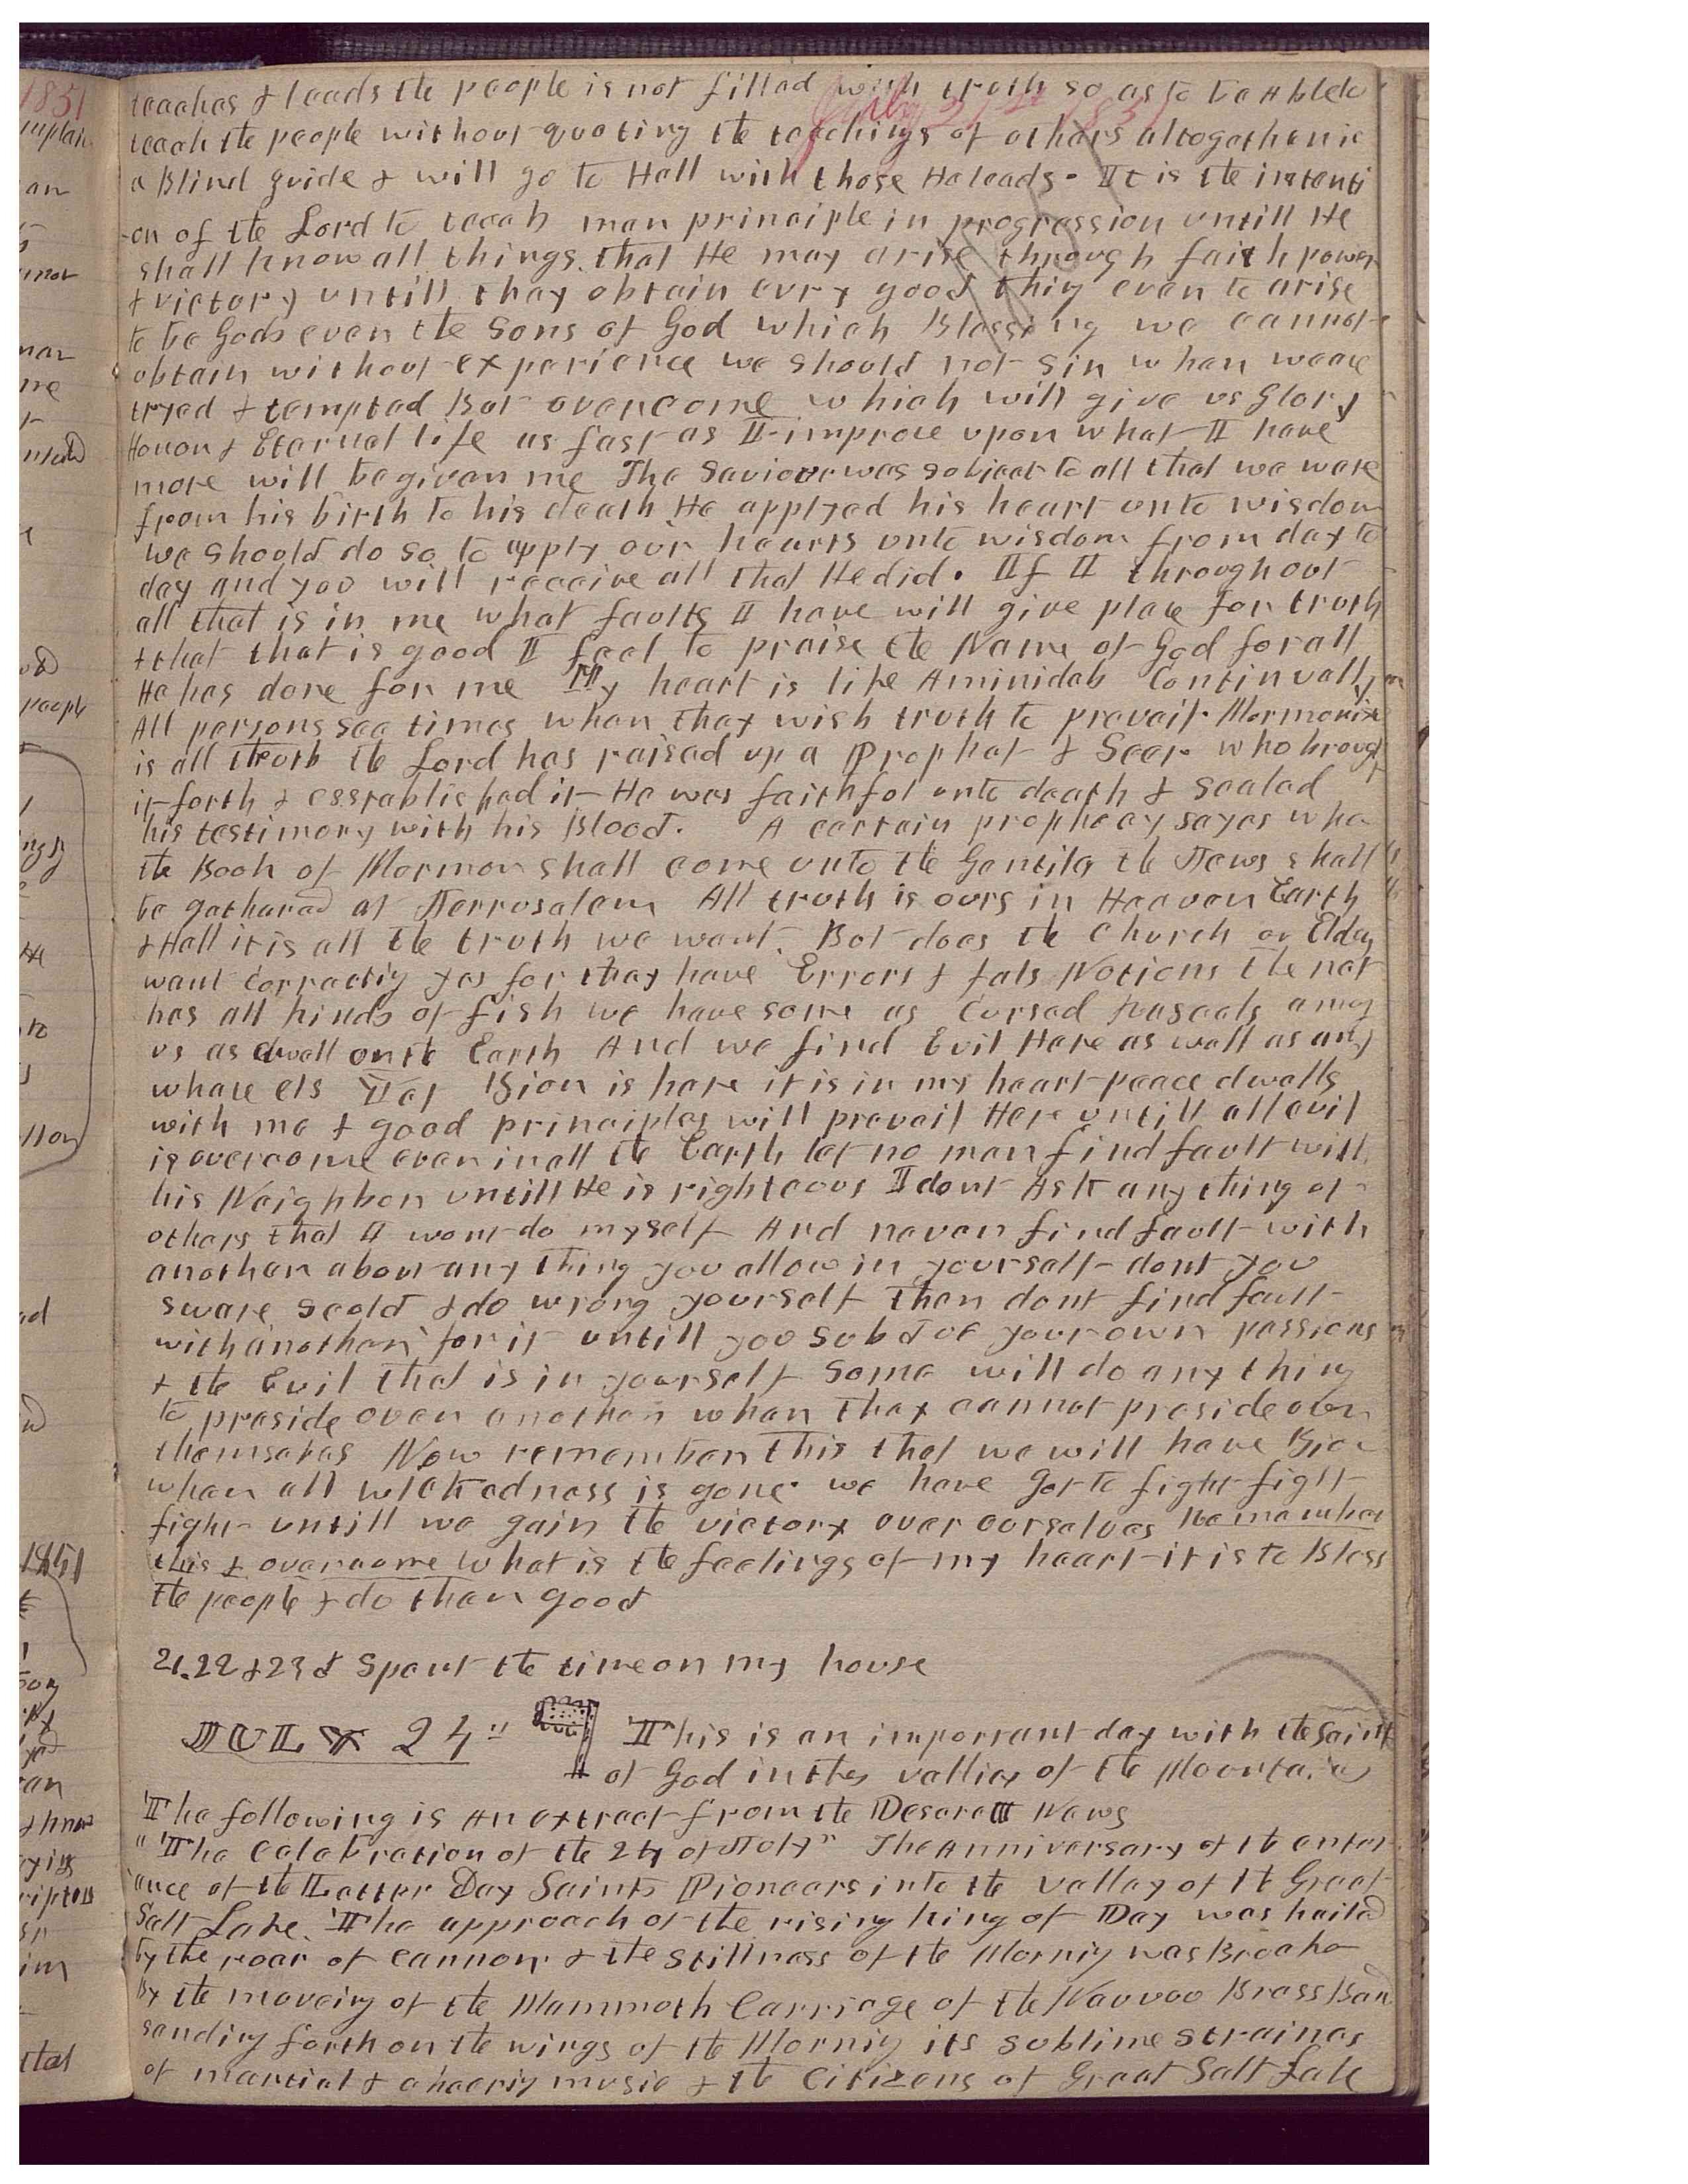 teaches & leads the people is not filled with truth so as to be Able to
July 21st 1851
teach the people without quoting the teachings of others altogether is
a Blind guide & will go to Hell with those He leads. It is the intenti
-on of the Lord to teach man principle in progression untill He
shall know all things that He may arise through faith power
& victory untill they obtain evry good thing even to arise
to be Gods even the Sons of God which Blessing we cannot
obtain without experience we should not sin when we are
tryed & tempted But overcome which will give us Glory
Honor & Eternal life as fast as I improve upon what I have
more will be given me The Saviour was subject to all that we were
from his birth to his death He applyed his heart unto wisdom
we should do so to apply our hearts unto wisdom from day to
day and you will receive all that He did. If I throughout
all that is in me what faults I have will give place for truth
& that that is good I feel to praise the Name of God for all
He has done for me My heart is like Aminidab Continually
All persons see times when they wish truth to prevail. Mormonism
is all truth the Lord has raised up a Prophet & Seer who brough
it forth & esstablished it He was faithful unto death & sealed
his testimony with his Blood. A certain prophecy sayes when
the Book of Mormon shall come unto the Gentiles the Jews shall
be gathered at Jerrusalem All truth is ours in Heaven Earth
& Hell it is all the truth we want. But does the Church or Elders
want Correcting yes for they have Errors & fals Notions the net
has all kinds of fish we have some as Cursed Rascals among
us as dwell on the Earth And we find Evil Here as well as any
where els Yet Zion is here it is in my heart peace dwells
with me & good principles will prevail Here untill all evil
is overcome even in all the Earth let no man find fault with
his Neighbor untill He is righteous I dont Ask any thing of
others that I wont do myself And never find fault with
another about any thing you allow in yourself dont you
sware scold & do wrong yourself then dont find fault
with another for it untill you subdue your own passions
& the Evil that is in yourself Some will do any thing
to preside over another when they cannot preside over
themselves Now remember this that we will have Zion
when all wickedness is gone. we have got to fight fight
fight untill we gain the victory over ourselves Remember
this & overcome What is the feelings of my heart it is to Bless
the people & do them good
21. 22 & 23d Spent the time on my house
JULY 24" This is an important day with the Saints
of God in the vallies of the Mountains
The following is An extract from the Deseret News
"The Celebration of the 24 of July" The Anniversary of the enter
ance of the Latter Day Saints Pioneers into the valley of the Great
Salt Lake. The approach of the rising King of Day was hailed
by the roar of cannon & the stillness of the Morning was Broake
By the moveing of the Mammoth Carriage of the Nauvoo Brass Band
sending forth on the wings of the Morning its sublime straines
of martial & cheering music & the Citizens of Great Salt Lake